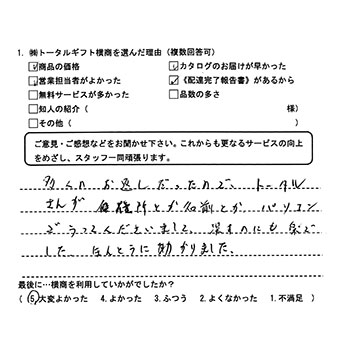 1. ㈱トータルギフト横商を選んだ理由（複数回答可）
☑商品の価格 ☑カタログのお届けが早かった
☑営業担当者がよかった ☑《配達完了報告書》があるから
□無料サービスが多かった □品数の多さ
□知人の紹介（ 様）
□その他（ ）
ご意見・ご感想などをお聞かせ下さい。これからも更なるサービスの向上
をめざし、スタッフ一同頑張ります。
多くのお返しだったので、トータル
さんが 住所とか名前とか パソコン
でうって
した ほんとうに助かりました、
最後に…横商を利用していかがでしたか？
（ 5.大変よかった 4.よかった 3.ふつう 2.よくなかった 1.不満足 ）